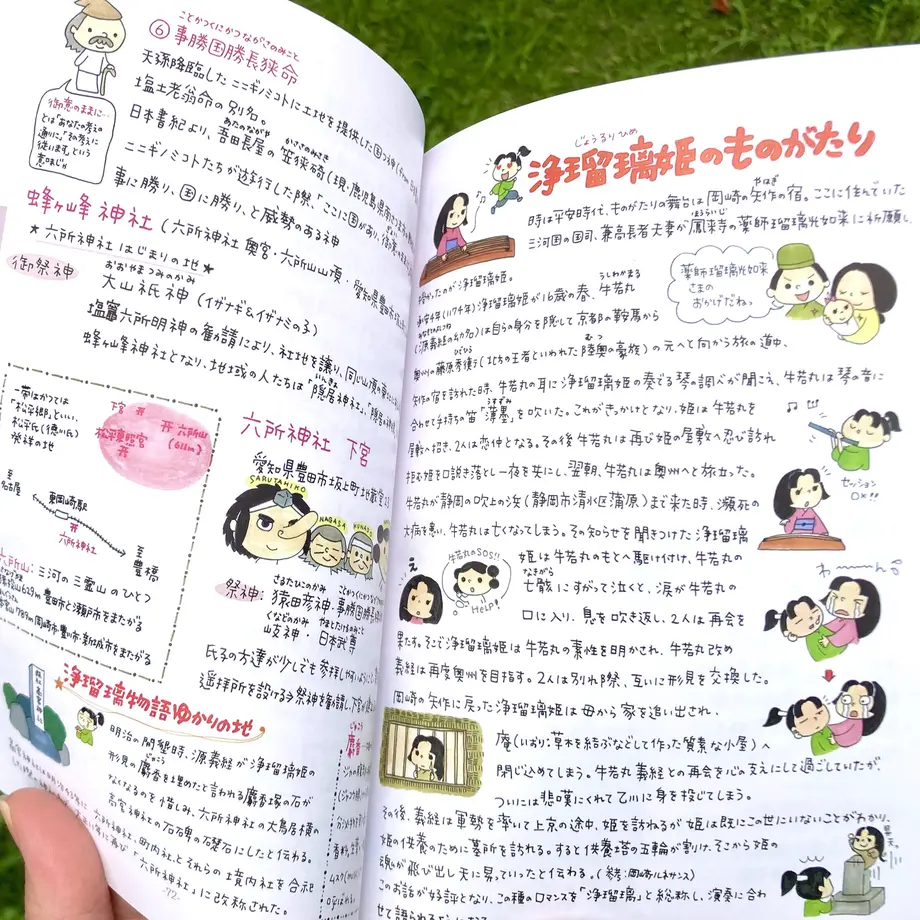 ことかつくにかつながさのみこと
⑥ 事勝国勝長狭命
天孫降臨したニニギノミコトに土地を提供した国つ神
塩土老翁命の別名。
あたのながや かささのみさき
日本書紀より、吾田長屋の笠狭碕(現・鹿児島県南さつま
ニニギノミコトたちが辺を行した際、「ここに国があり、御意
事に勝り、国に勝り、と威勢のある神
御意のままに…
とは「あなたの考えの
通りに」「その考えに
従います」という
意味じゃ
蜂ヶ峰神社(六所神社奥宮・六所山山頂・愛知県豊田市
★六所神社はじまりの地★
御祭神
おおやまつみのかみ
大山祇神(イザナギ&イザナミの子)
塩竈六所明神の勧請により、社地を譲り、同じ山頂の
いんきょ
蜂ヶ峰神社となり、地域の人たちは「隠居神社」
一帯はかつては
「松平郷」といい、
松平氏(徳川氏)
発祥の地
下宮
六所山
松平東照宮
至
名古屋
東岡崎駅
六所神社
至
豊橋
六所山:三河の三霊山のひとつ
豊田市と瀬戸市をまたがる
789m岡崎市・豊川市・新城市をまたがる
六所神社 下宮
愛知県豊田市坂上町地蔵堂
SARUTAHIKO
NAGASA
KUNAD
さるたひこのかみ
祭神:猿田彦神・事勝国勝長
くなどのかみ やまとたけるのみこと
岐神・日本武尊
氏子の方達が少しでも参拝しやすいように
遥拝所を設ける祭神を勧請し、下宮が
浄瑠璃物語ゆかりの地
明治の開墾時、源義経が浄瑠璃姫の
じゃこう
形見の麝香を埋めたと言われる麝香塚の石が
なくなるのを惜しみ、六所神社の大鳥居横の
高宮神社の石碑の石礎石にしたと伝わる。
六所神社、町内社とそれらの境内社を合祀
「六所神社」に改称された。
-72-
じょうるりひめ
浄瑠璃姫のものがたり
やはぎ
時は平安時代、ものがたりの舞台は岡崎の矢作の宿。ここに住んでいた
ほうらいじ
三河国の国司、兼高長者夫妻が鳳来寺の薬師瑠璃光如来に祈願し、
授かったのが浄瑠璃姫。
薬師瑠璃光如来
さまの
おかげだねっ
うしわかまる
承安4年(1174年)浄瑠璃姫が16歳の春、牛若丸
みなもとのよしつね
(源義経の幼名)は自らの身分を隠して京都の鞍馬から
ひでひら むつ
奥州の藤原秀衡(北方の王者といわれた陸奥の豪族)の元へと向かう旅の道中、
矢作の宿を訪れた時、牛若丸の耳に浄瑠璃姫の奏でる琴の調べが聞こえ、牛若丸は琴の音に
うすずみ
合わせて手持ちの笛「薄墨」を吹いた。これがきっかけとなり、姫は牛若丸を
屋敷へ招き、2人は恋仲となる。その後牛若丸は再び姫の屋敷へ忍び訪れ
拒む姫を口説き落とし一夜を共にし、翌朝、牛若丸は奥州へと旅立った。
セッション
OK!!
牛若丸が静岡の吹上の浜(静岡市清水区蒲原)まで来た時、瀕死の
大病を患い、牛若丸は亡くなってしまう。その知らせを聞きつけた浄瑠璃
え
牛若丸のSOS!!
Help!
姫は牛若丸のもとへ駆け付け、牛若丸の
なきがら
亡骸にすがって泣くと、涙が牛若丸の
口に入り、息を吹き返し、2人は再会を
わーーーん
果たす。そこで浄瑠璃姫は牛若丸の素性を明かされ、牛若丸改め
義経は再度奥州を目指す。2人は別れ際、互いに形見を交換した。
岡崎の矢作に戻った浄瑠璃姫は母から家を追い出され、
庵(いおり:草木を結ぶなどして作った質素な小屋)へ
閉じ込めてしまう。牛若丸義経との再会を心の支えにして過ごしていたが、
ついには悲嘆にくれて乙川に身を投じてしまう。
その後、義経は軍勢を率いて上京の途中、姫を訪ねるが姫は既にこの世にいないことがわかり、
姫の供養のために墓所を訪れる。すると供養塔の五輪が割け、そこから姫の
魂が飛び出し天に昇っていったと伝わる。(参考:岡崎ルネサンス)
昇天。
このお話が好評となり、この種のロマンスを「浄瑠璃」と総称し、演奏に合わ
せて語られる